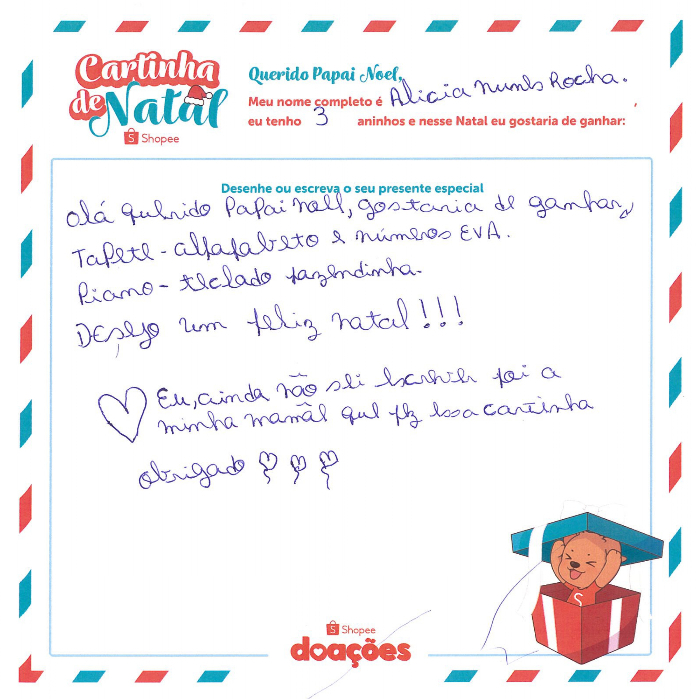 Cartinha
de Natal
Shopee
Querido Papai Noel,
Meu nome completo é Alicia Nunes Rocha.
eu tenho 3 aninhos e nesse Natal eu gostaria de ganhar:
Desenhe ou escreva o seu presente especial
Olá querido Papai Noel, gostaria de ganhar,
Tapete - alfafabeto e números EVA.
Piano - teclado fazendinha.
Desejo um feliz natal!!!
Eu, ainda não sei escrever foi a
minha mamãe que fez essa cartinha
obrigado
Shopee
doações